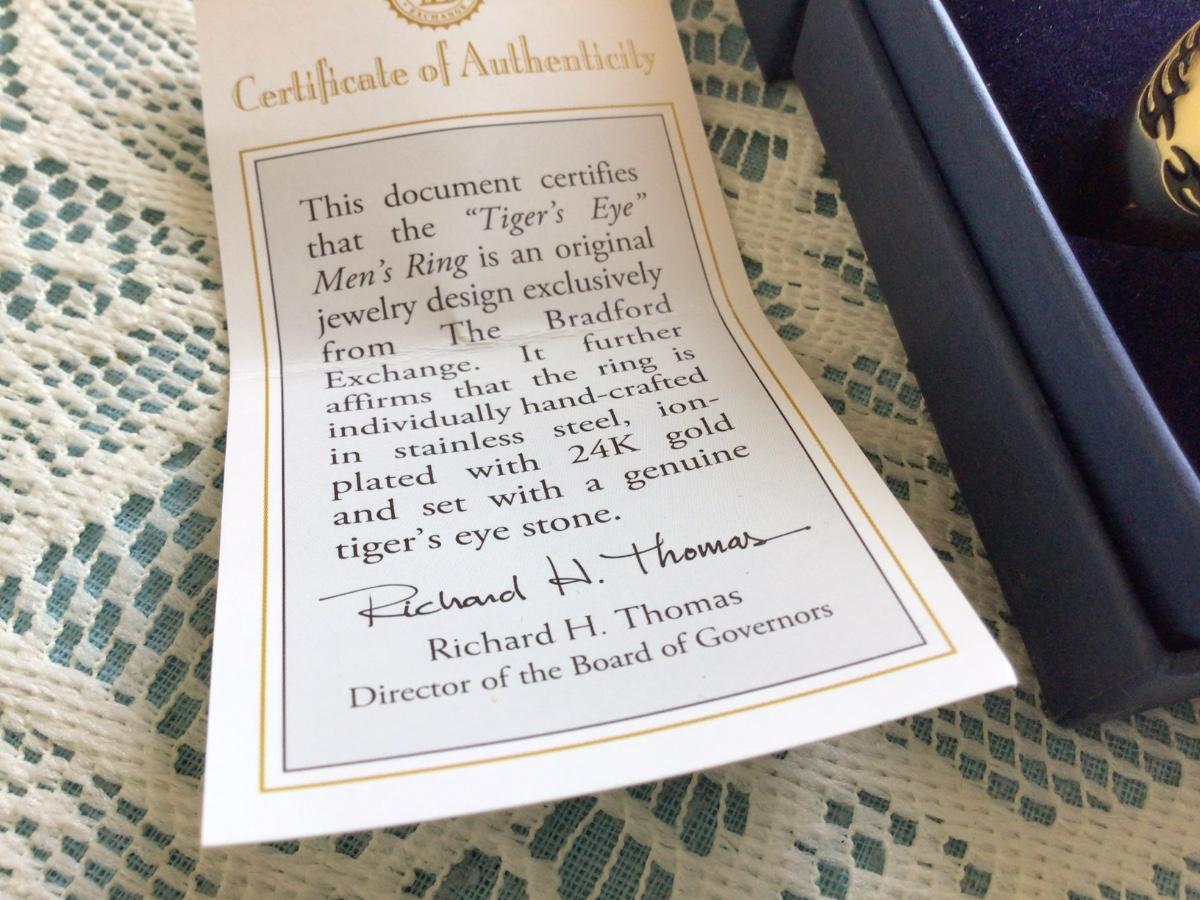 EXCHANGE
Certificate of Authenticity
This document certifies
that the “Tiger’s Eye”
Men’s Ring is an original
jewelry design exclusively
from The Bradford
Exchange. It further
affirms that the ring is
individually hand-crafted
in stainless steel, ion-
plated with 24K gold
and set with a genuine
tiger’s eye stone.
Richard H. Thomas
Richard H. Thomas
Director of the Board of Governors